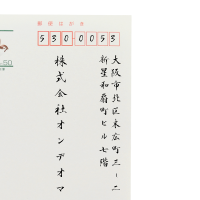 郵便はがき
530-0053
大阪市北区末広町三-二
新星和扇町ビル七階
株式会社オンデオマ
50